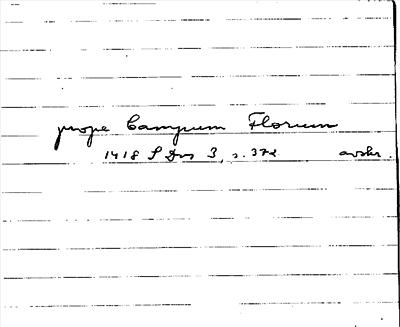 prope Campum Florum
1418 S Dvs 3, s. 372 avskr.